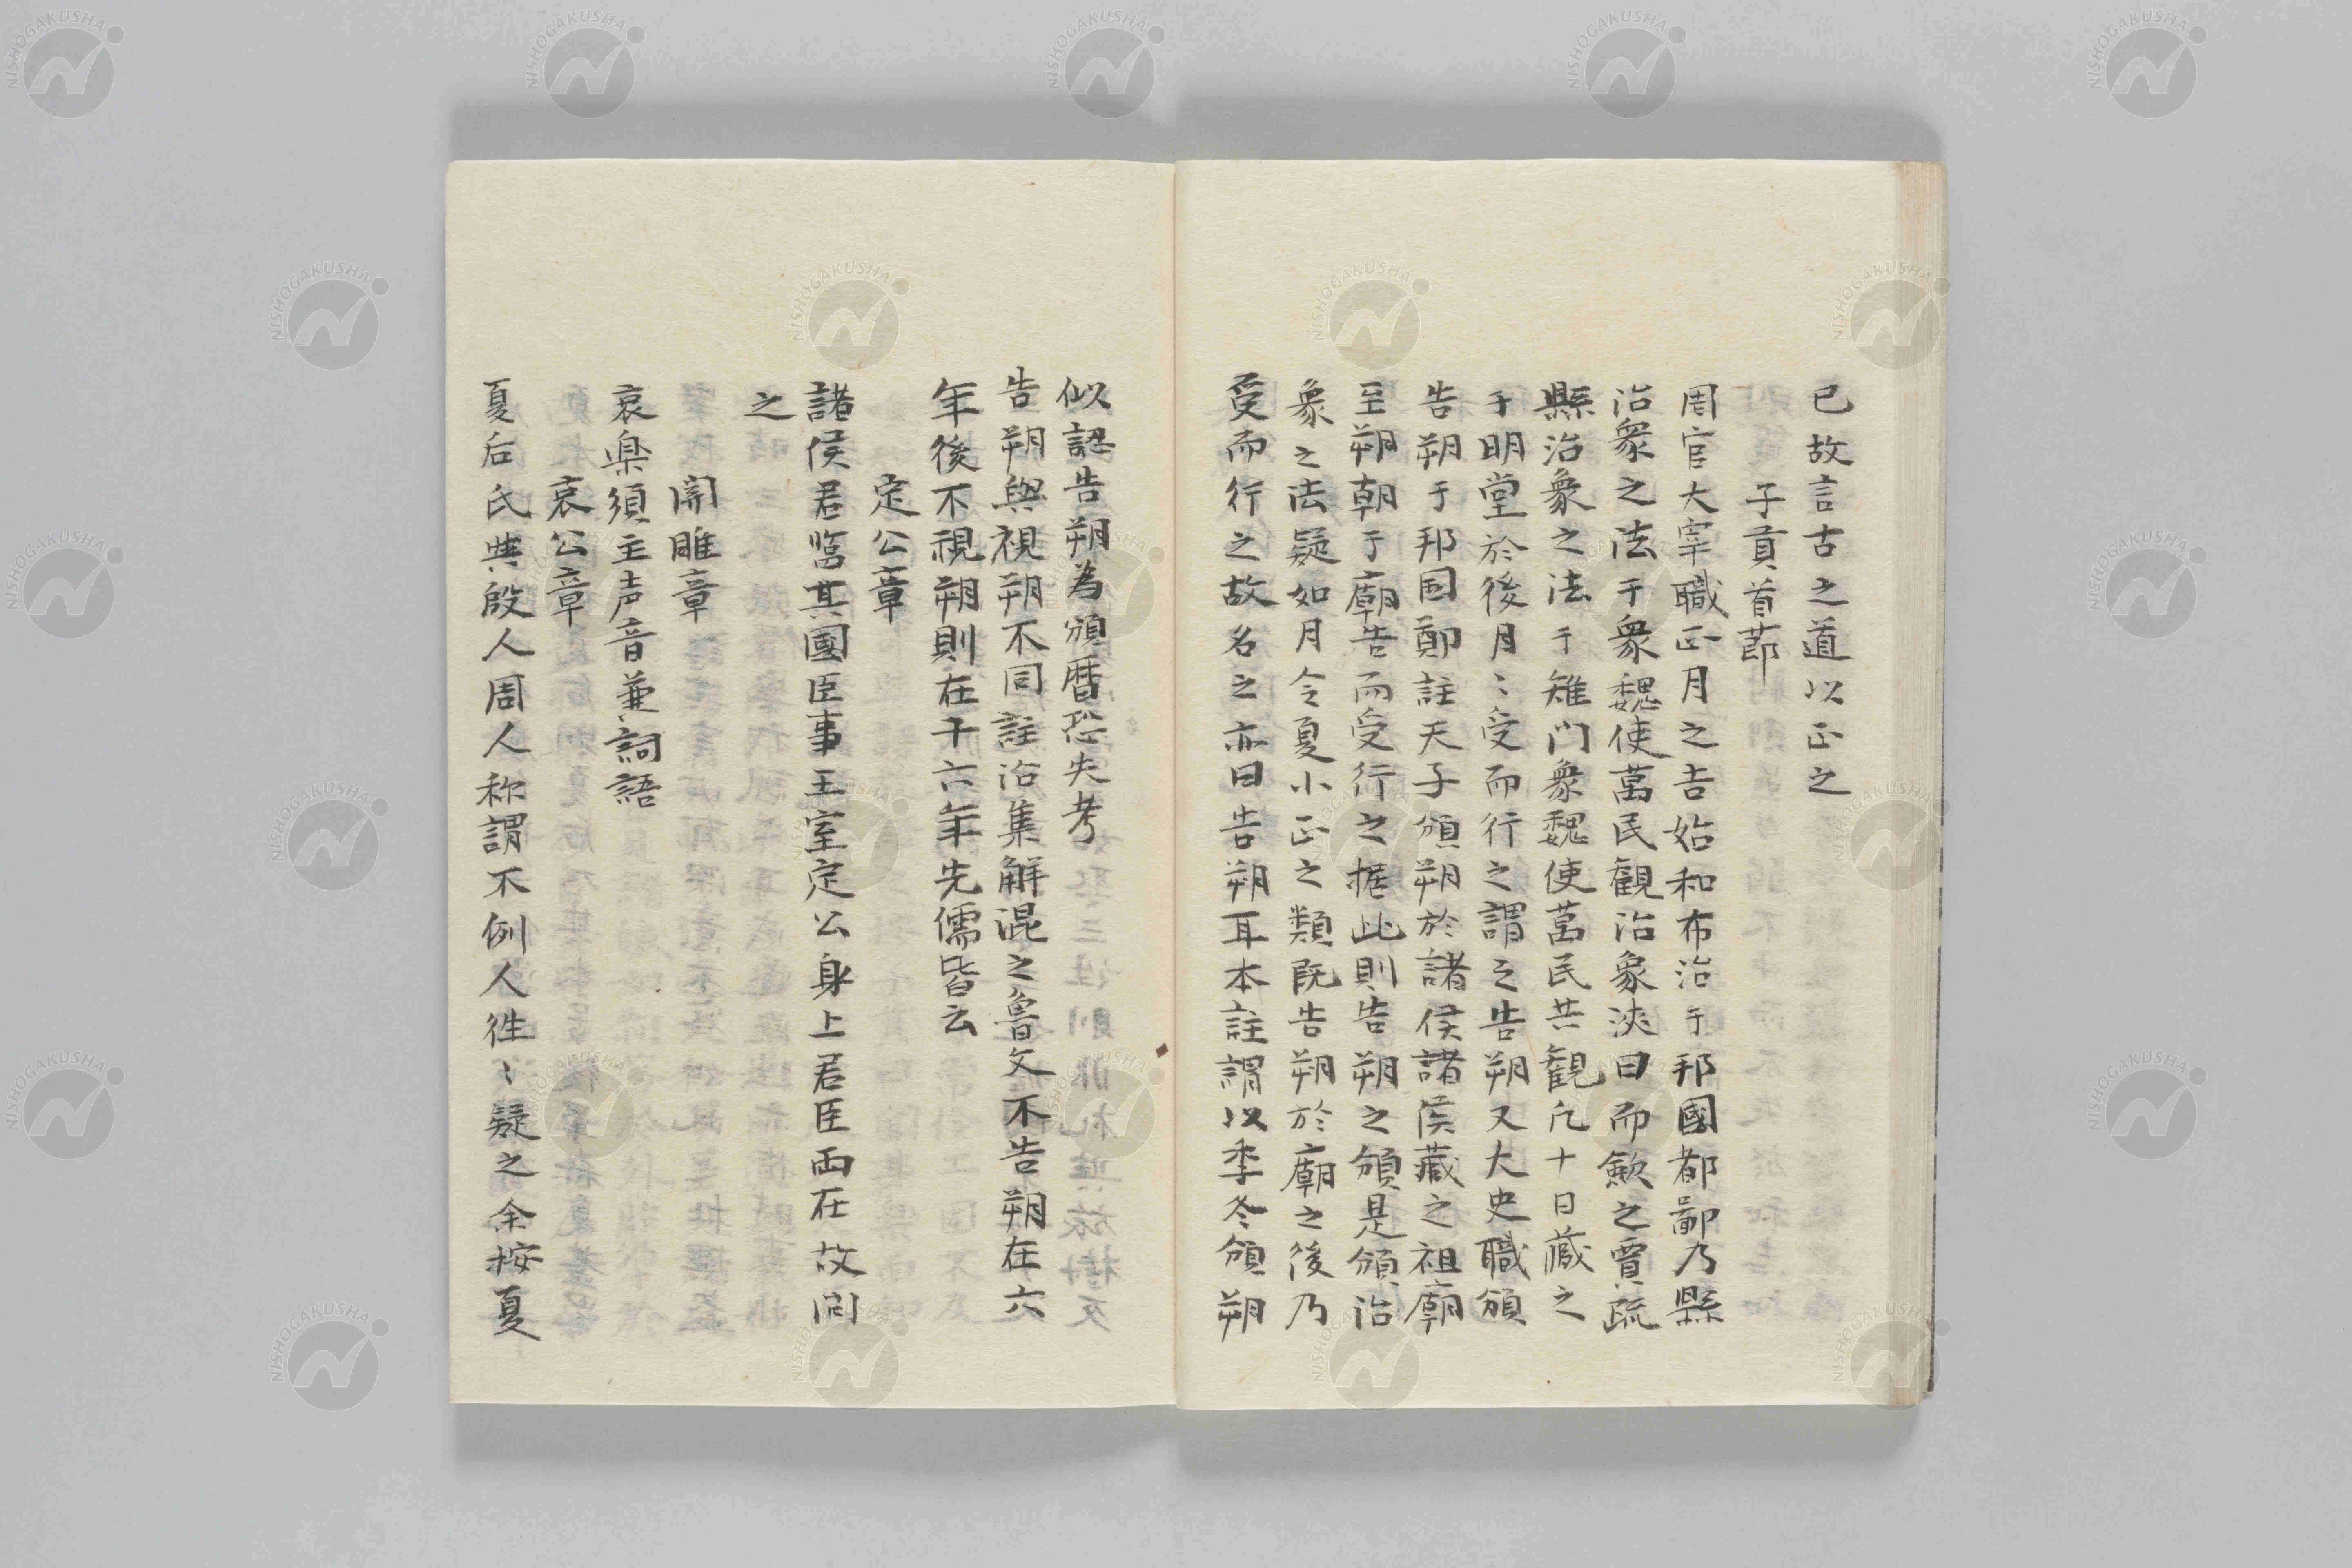 已故言古之道以正之
子貢首莭
周官大宰職正月之吉始和布治于邦國都鄙乃縣
治象之法于象魏使萬民觀治象浹日而斂之賈疏
縣治象之法于雉门象魏使萬民共観凡十日藏之
于明堂於後月〻受而行之謂之告朔又大史職頒
告朔于邦国鄭註天子頒朔於諸侯諸侯藏之祖廟
至朔朝于廟告而受行之據此則告朔之頒是頒治
象之法疑如月令夏小正之類既告朔於廟之後乃
受而行之故名之亦曰告朔耳本註謂以季冬頒朔
似認告朔為頒暦恐失考
告朔與視朔不同註治集解混之魯文不告朔在六
年後不視朔則在十六年先儒皆云
定公章
諸侯君臨其國臣事王室定公身上君臣両在故问
之
関雎章
哀楽須主声音兼詞語
哀公章
夏后氏與殷人周人称謂不例人徃〻疑之余按夏
NISHOGAKUSHA